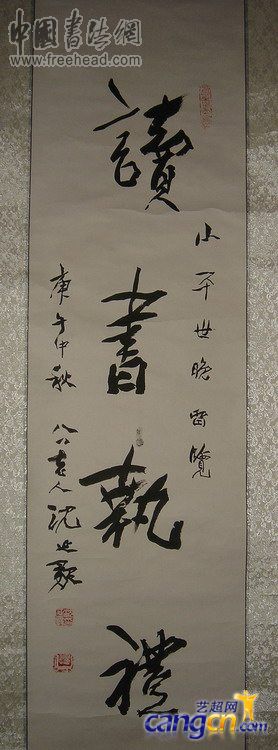 中国书法網
www.freehead.com
小平世晚留覽
讀書執禮
庚午中秋 八八老人沈延毅
艺超网
cangcn.com